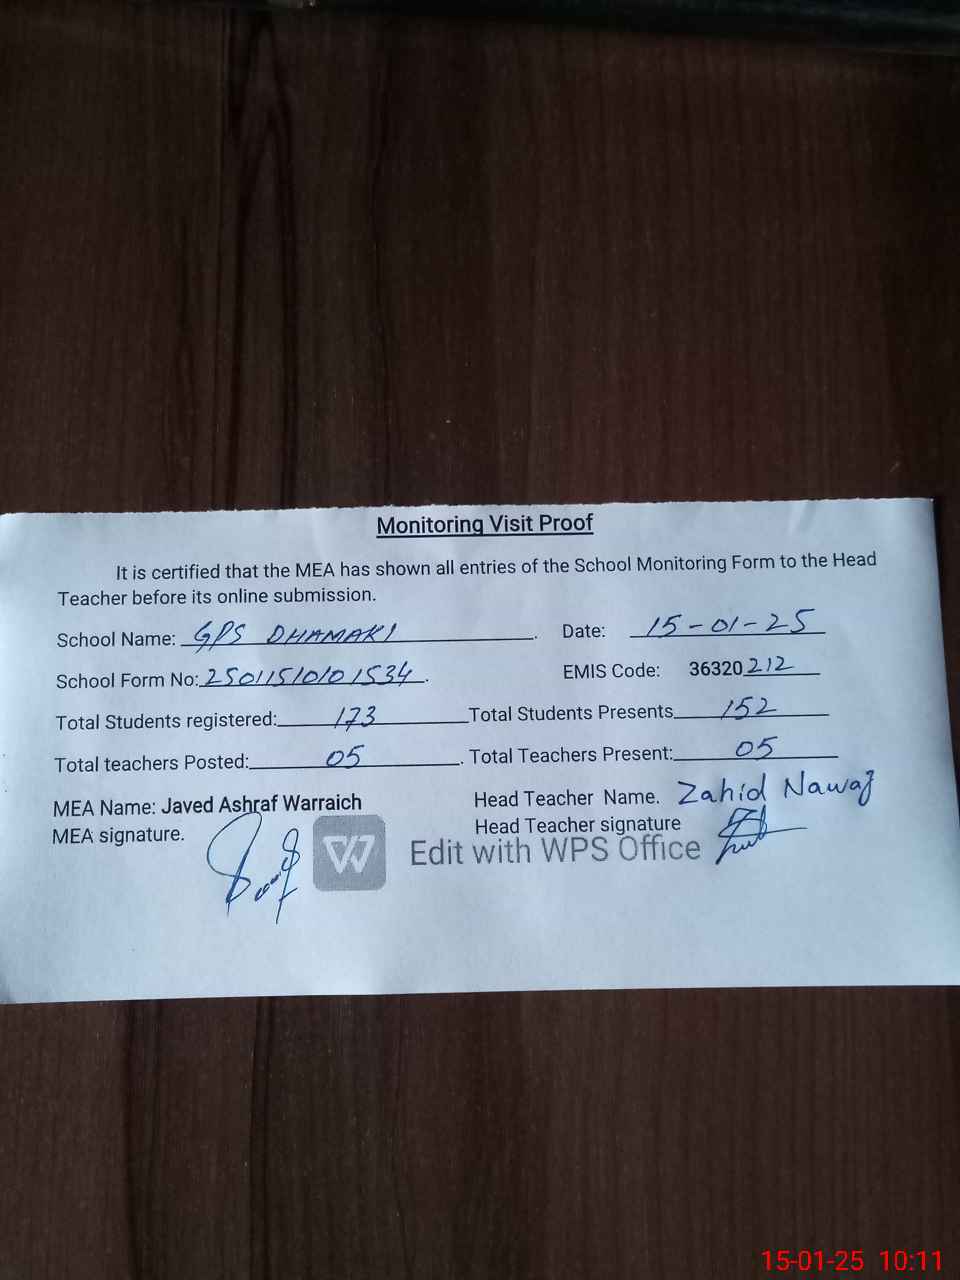 Monitoring Visit Proof
It is certified that the MEA has shown all entries of the School Monitoring Form to the Head
Teacher before its online submission.
School Name: GPS DHAMAKI. Date: 15-01-25
School Form No: 25011510101534. EMIS Code: 36320212
Total Students registered: 173 Total Students Presents 152
Total teachers Posted: 05. Total Teachers Present: 05
MEA Name: Javed Ashraf Warraich Head Teacher Name. Zahid Nawaz
MEA signature. Head Teacher signature
Edit with WPS Office
15-01-25 10:11